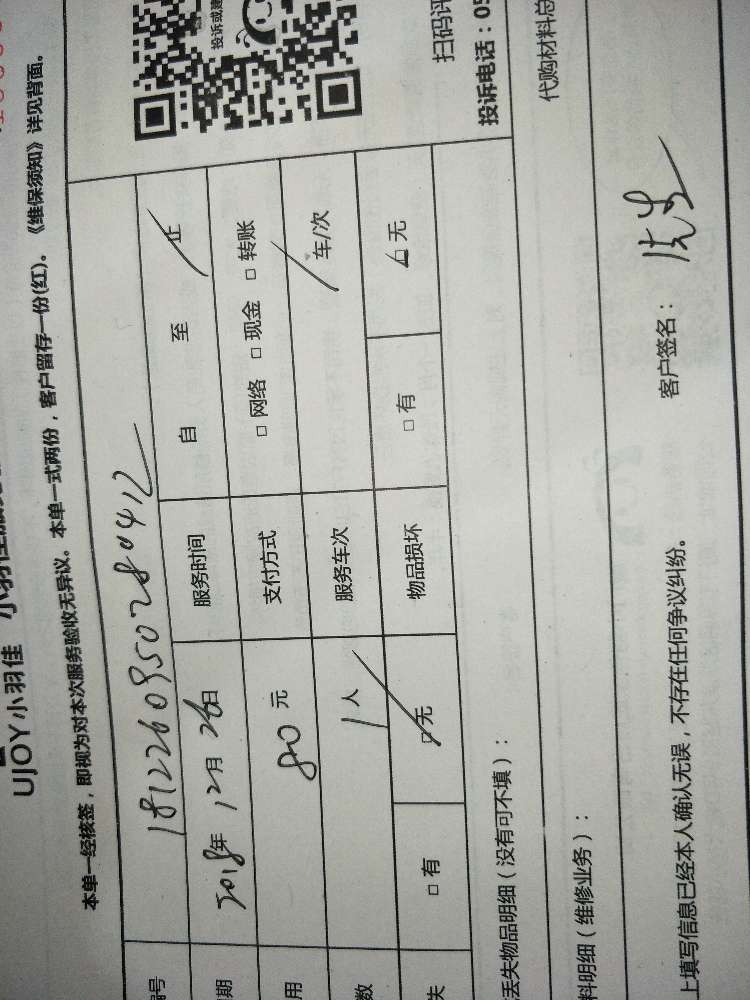 UJOY小羽佳
本单一经核签，即视为对本次服务验收无异议。本单一式两份，客户留存一份(红)。《维保须知》详见背面。
号 1812260950280412
期 2018年12月26日 服务时间 自 至 止
用 80元 支付方式 □网络 □现金 □转账
数 1人 服务车次 车/次
失 □有 □无 物品损坏 □有 □无
投诉或建
扫码评
投诉电话：05
丢失物品明细（没有可不填）：
代购材料总
料明细（维修业务）：
上填写信息已经本人确认无误，不存在任何争议纠纷。 客户签名：